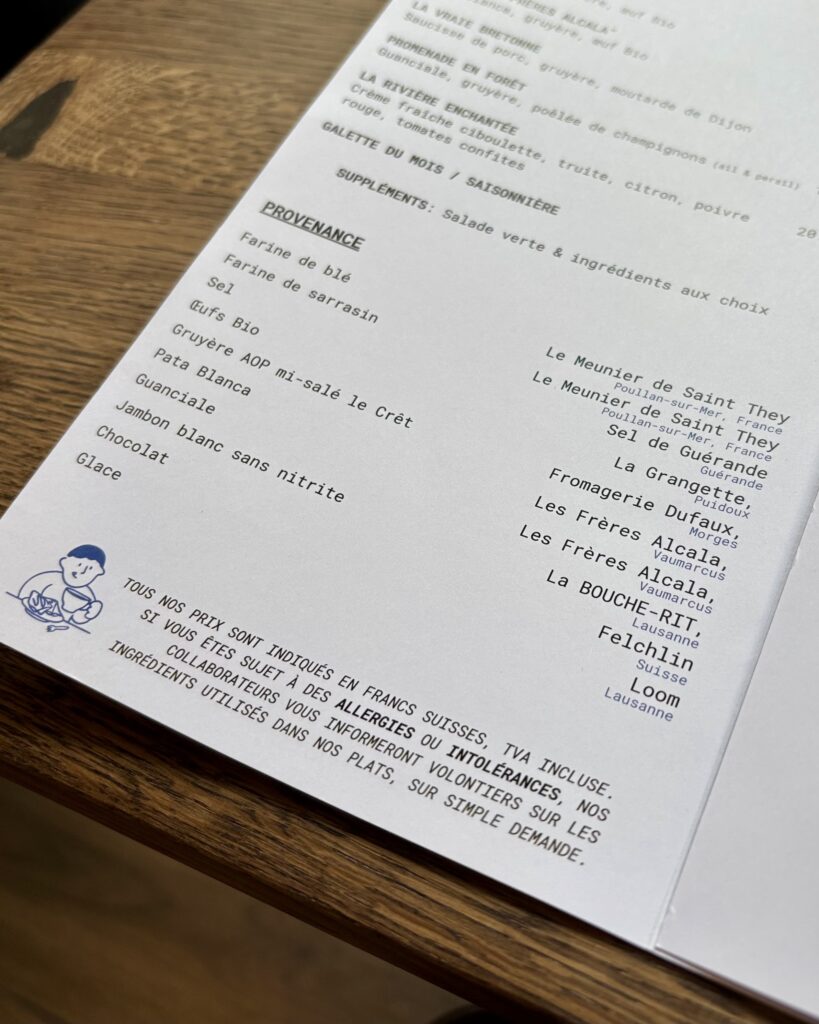 FRÈRES ALCALA"
gruyère, œuf Bio
LA VRAIE BRETONNE
Saucisse de porc, gruyère, moutarde de Dijon
PROMENADE EN FORÊT
Guanciale, gruyère, poêlée de champignons (ail & persil)
LA RIVIÈRE ENCHANTÉE
Crème fraîche ciboulette, truite, citron, poivre
rouge, tomates confites
20
GALETTE DU MOIS / SAISONNIÈRE
SUPPLÉMENTS: Salade verte & ingrédients aux choix
PROVENANCE
Farine de blé
Le Meunier de Saint They
Poullan-sur-Mer, France
Farine de sarrasin
Le Meunier de Saint They
Poullan-sur-Mer, France
Sel
Sel de Guérande
Guérande
Œufs Bio
La Grangette,
Puidoux
Gruyère AOP mi-salé le Crêt
Fromagerie Dufaux,
Morges
Pata Blanca
Les Frères Alcala,
Vaumarcus
Guanciale
Les Frères Alcala,
Vaumarcus
Jambon blanc sans nitrite
La BOUCHE-RIT,
Lausanne
Chocolat
Felchlin
Suisse
Glace
Loom
Lausanne
TOUS NOS PRIX SONT INDIQUÉS EN FRANCS SUISSES, TVA INCLUSE.
SI VOUS ÊTES SUJET À DES ALLERGIES OU INTOLÉRANCES, NOS
COLLABORATEURS VOUS INFORMERONT VOLONTIERS SUR LES
INGRÉDIENTS UTILISÉS DANS NOS PLATS, SUR SIMPLE DEMANDE.